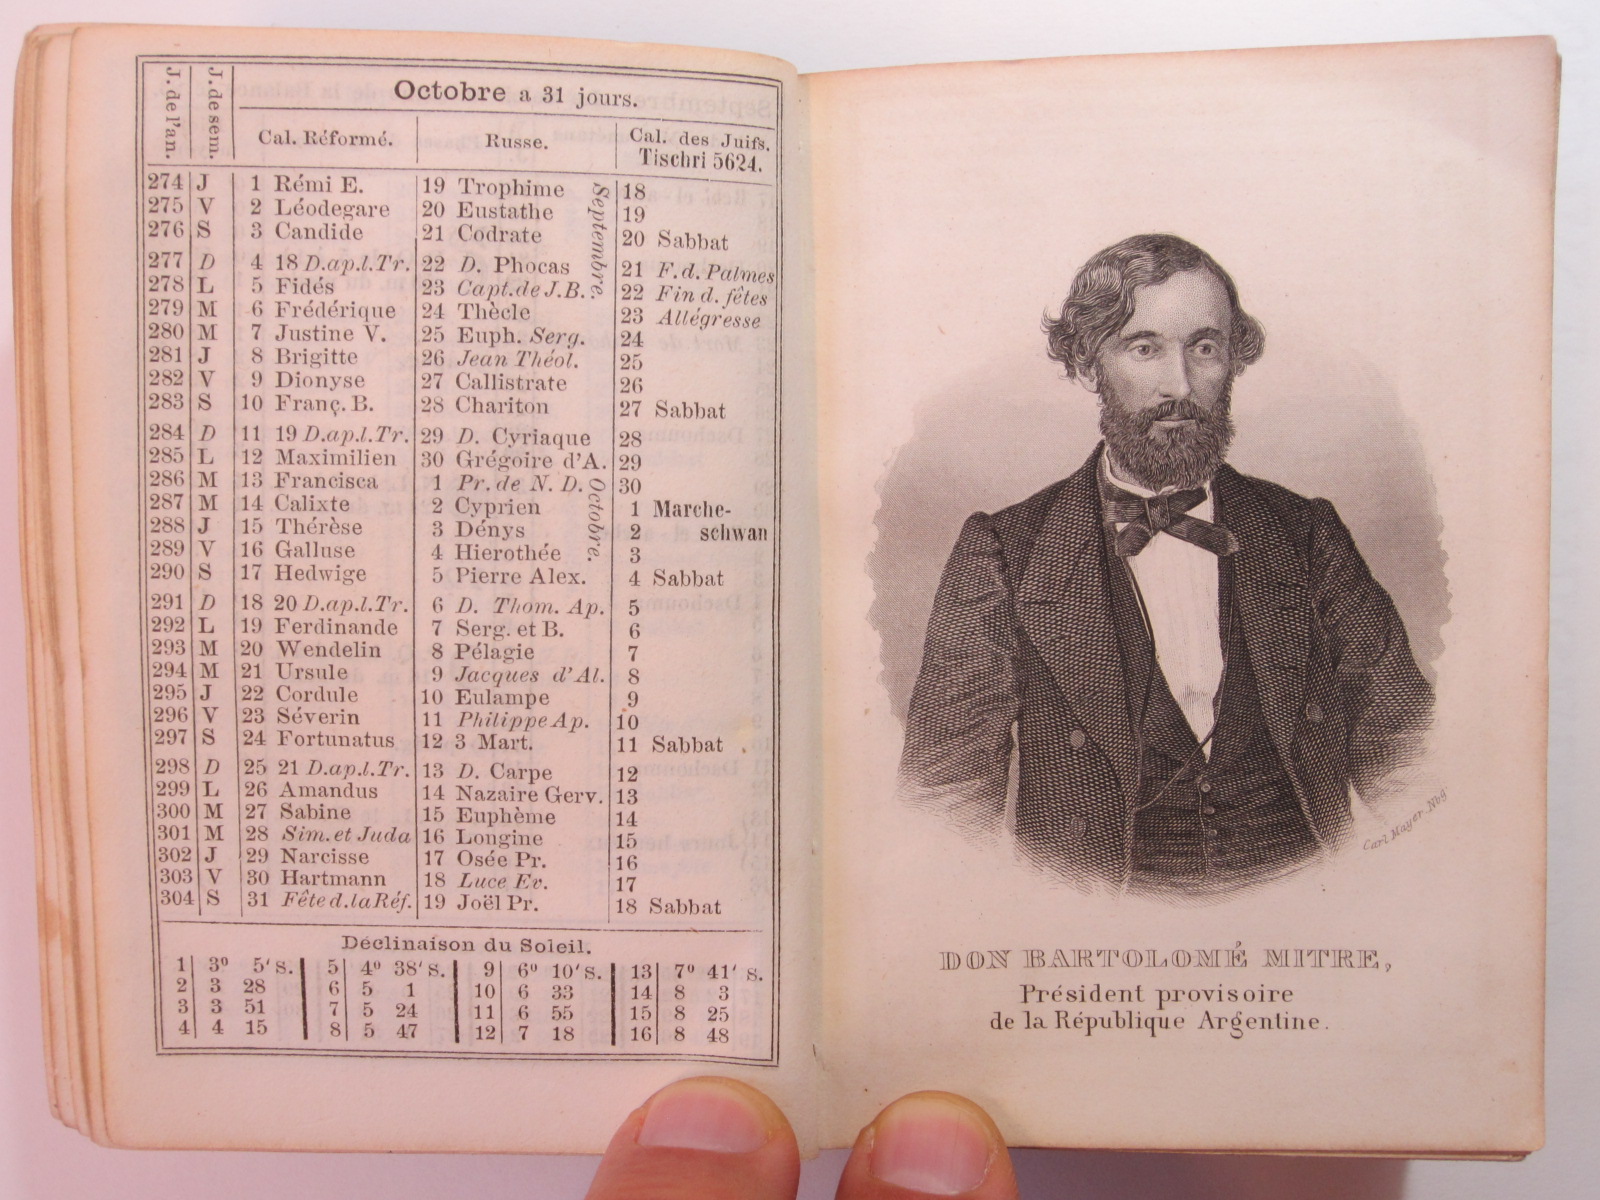 Octobre a 31 jours.
J. de l'an. J. de sem. Cal. Réformé. Russe. Cal. des Juifs. Tischri 5624.
274 J 1 Rémi E. 19 Trophime Septembre. 18
275 V 2 Léodegare 20 Eustathe 19
276 S 3 Candide 21 Codrate 20 Sabbat
277 D 4 18 D.ap.l.Tr. 22 D. Phocas 21 F.d.Palmes
278 L 5 Fidés 23 Capt.de J.B. 22 Fin d. fêtes
279 M 6 Frédérique 24 Thècle 23 Allégresse
280 M 7 Justine V. 25 Euph. Serg. 24
281 J 8 Brigitte 26 Jean Théol. 25
282 V 9 Dionyse 27 Callistrate 26
283 S 10 Franç. B. 28 Chariton 27 Sabbat
284 D 11 19 D.ap.l.Tr. 29 D. Cyriaque 28
285 L 12 Maximilien 30 Grégoire d'A. 29
286 M 13 Francisca 1 Pr. de N. D. Octobre. 30
287 M 14 Calixte 2 Cyprien 1 Marche-
288 J 15 Thérèse 3 Dénys 2 schwan
289 V 16 Galluse 4 Hierothée 3
290 S 17 Hedwige 5 Pierre Alex. 4 Sabbat
291 D 18 20 D.ap.l.Tr. 6 D. Thom. Ap. 5
292 L 19 Ferdinande 7 Serg. et B. 6
293 M 20 Wendelin 8 Pélagie 7
294 M 21 Ursule 9 Jacques d'Al. 8
295 J 22 Cordule 10 Eulampe 9
296 V 23 Séverin 11 Philippe Ap. 10
297 S 24 Fortunatus 12 3 Mart. 11 Sabbat
298 D 25 21 D.ap.l.Tr. 13 D. Carpe 12
299 L 26 Amandus 14 Nazaire Gerv. 13
300 M 27 Sabine 15 Euphème 14
301 M 28 Sim. et Juda 16 Longine 15
302 J 29 Narcisse 17 Osée Pr. 16
303 V 30 Hartmann 18 Luce Ev. 17
304 S 31 Fête d. la Réf. 19 Joël Pr. 18 Sabbat
Déclinaison du Soleil.
1 3º 5' S. 5 4º 38' S. 9 6º 10' S. 13 7º 41' S.
2 3 28 6 5 1 10 6 33 14 8 3
3 3 51 7 5 24 11 6 55 15 8 25
4 4 15 8 5 47 12 7 18 16 8 48
Carl Mayer Nbg
DON BARTOLOMÉ MITRE,
Président provisoire
de la République Argentine.